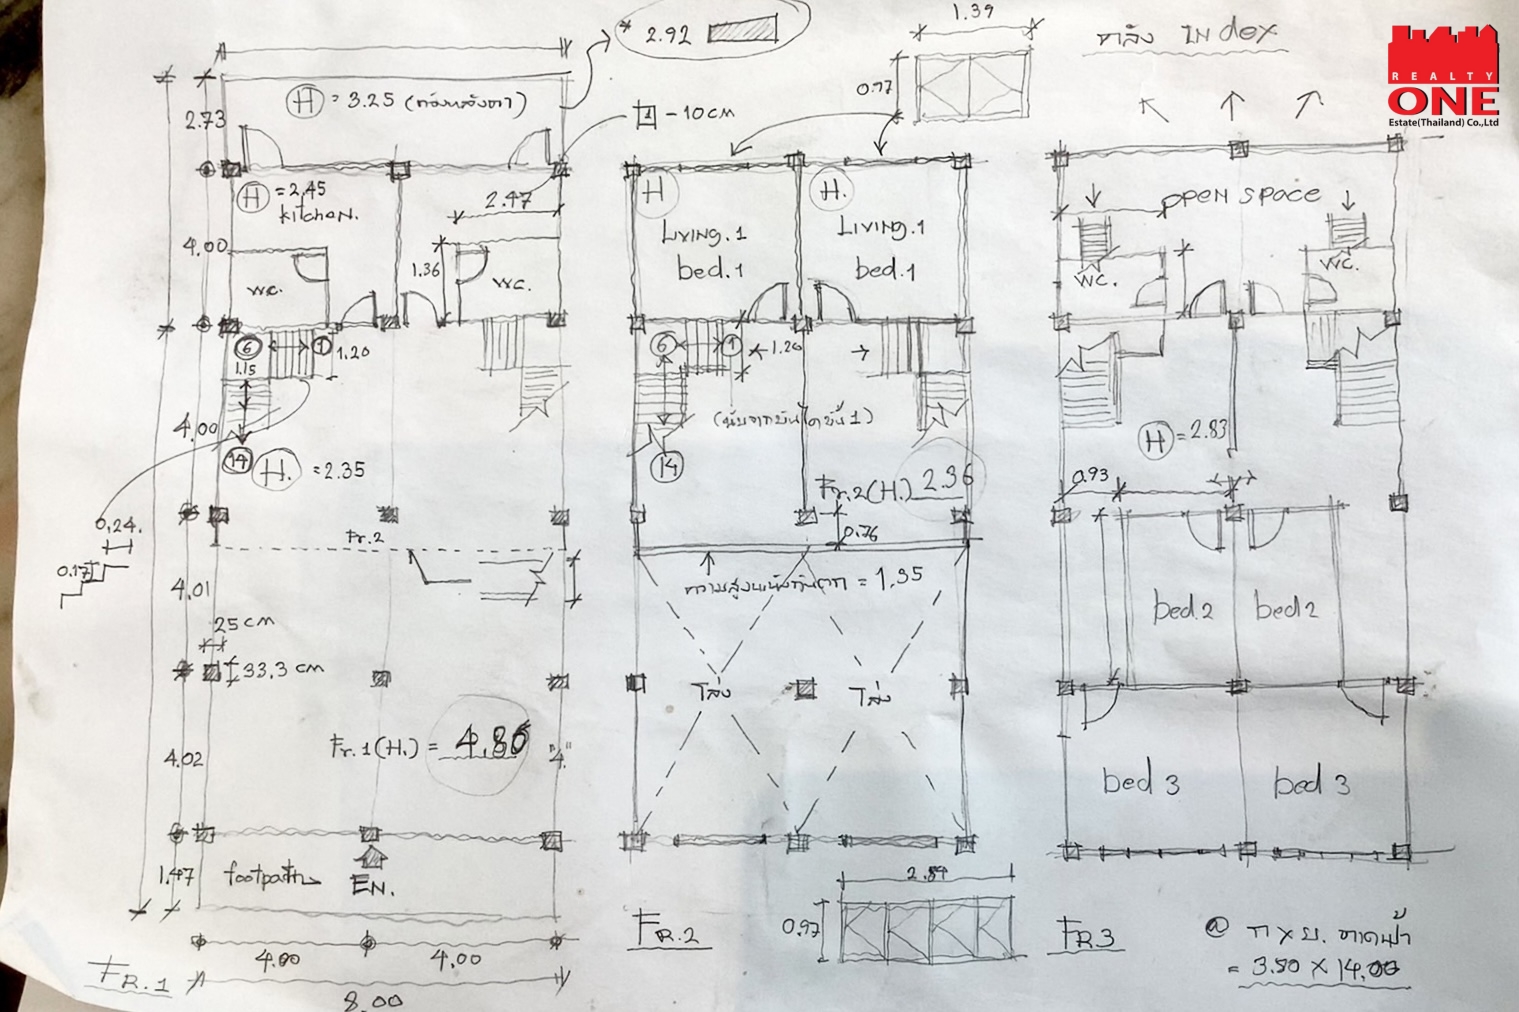 * 2.92
1.39
หลัง INdex
REALTY
ONE
Estate(Thailand) Co.,Ltd
H = 3.25 (ห้องหลังคา)
0.97
2.73
1 - 10 CM
H = 2.45
kitchen.
2.47
H
Living.1
bed.1
H.
Living.1
bed.1
OPEN SPACE
4.00
1.36
WC.
WC.
WC.
WC.
6
1
1.20
1.15
6
1
1.20
4.00
14
H. = 2.35
14
Fr.2 (H.) 2.36
H = 2.83
0.93
0.24.
0.17
Fr.2
0.76
ความสูงผนังกันตก = 1.35
4.01
25 CM
33.3 CM
bed.2
bed 2
โล่ง
โล่ง
4.02
Fr.1 (H.) = 4.86
"4"
bed 3
bed 3
1.47
footpath
EN.
2.84
0.97
FR.2
FR.3
@ ก x ย. ดาดฟ้า
= 3.80 X 14.00
4.00
4.00
FR.1
8.00